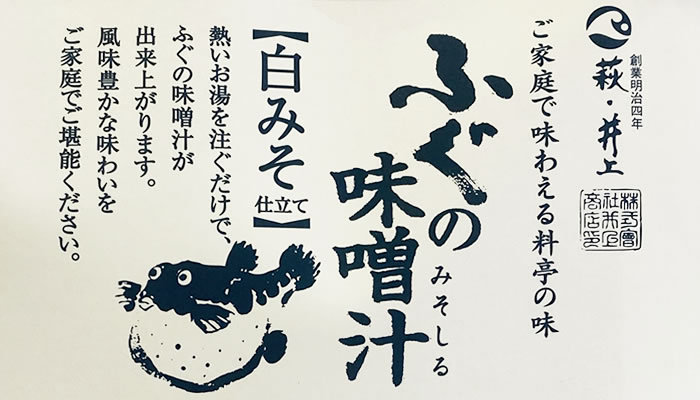 創業明治四年
萩・井上
株式會社井上商店印
ご家庭で味わえる料亭の味
ふぐの
味噌汁
みそしる
【白みそ仕立て】
熱いお湯を注ぐだけで、
ふぐの味噌汁が
出来上がります。
風味豊かな味わいを
ご家庭でご堪能ください。